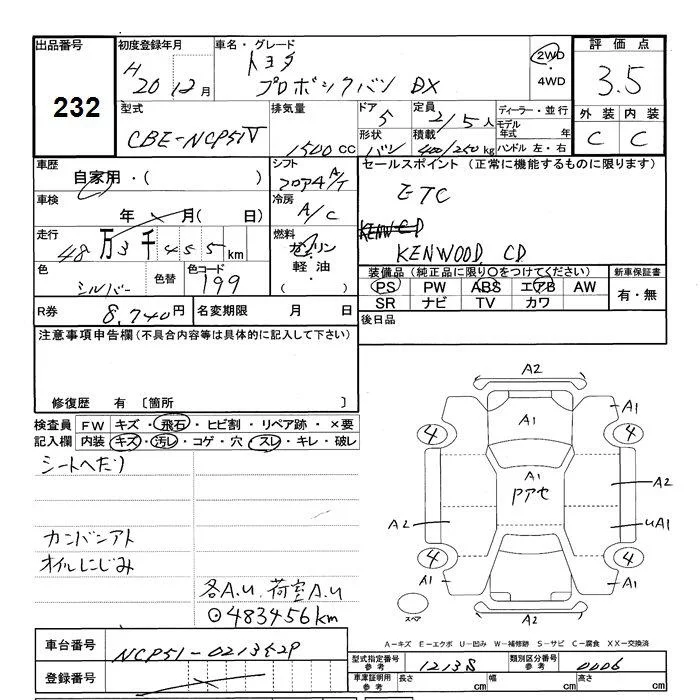 出品番号
232
初度登録年月
H 20年 12月
車名・グレード
トヨタ
プロボックスバン DX
2WD
・
4WD
評価点
3.5
型式
CBE-NCP51V
排気量
1500 cc
ドア
5
定員
2/5人
形状
バン
積載
400/250 kg
ディーラー・並行
モデル年式 年
ハンドル 左・右
外装 内装
C C
車歴
自家用・( )
シフト
フロア4 A/T
セールスポイント (正常に機能するものに限ります)
ETC
KENWOOD CD
車検
年 月( 日)
冷房
A/C
走行
48万3千455km
燃料
ガソリン
・
軽油
( )
色
シルバー
色替
色コード
199
装備品 (純正品に限り〇をつけてください)
PS PW ABS エアB AW
SR ナビ TV カワ
新車保証書
有・無
R券
8,740円
名変期限 月 日
後日品
注意事項申告欄(不具合内容等は具体的に記入して下さい)
修復歴 有 〔箇所 〕
検査員記入欄
FW キズ・飛石・ヒビ割・リペア跡・×要
内装 キズ・汚レ・コゲ・穴・スレ・キレ・破レ
シートへたり
カンバンアト
オイルにじみ
各A.U. 荷室A.U
⊙483456km
A2
A1
A1
4
4
A1
Pアセ
A2
A2
uA1
4
4
A1
A1
A2
スペア
A-キズ E-エクボ U-凹み W-補修跡 S-サビ C-腐食 XX-交換済
車台番号
NCP51-0213529
登録番号
型式指定番号
参考
12138
類別区分番号
参考
0006
車庫証明用
参考
長さ cm
幅 cm
高さ cm